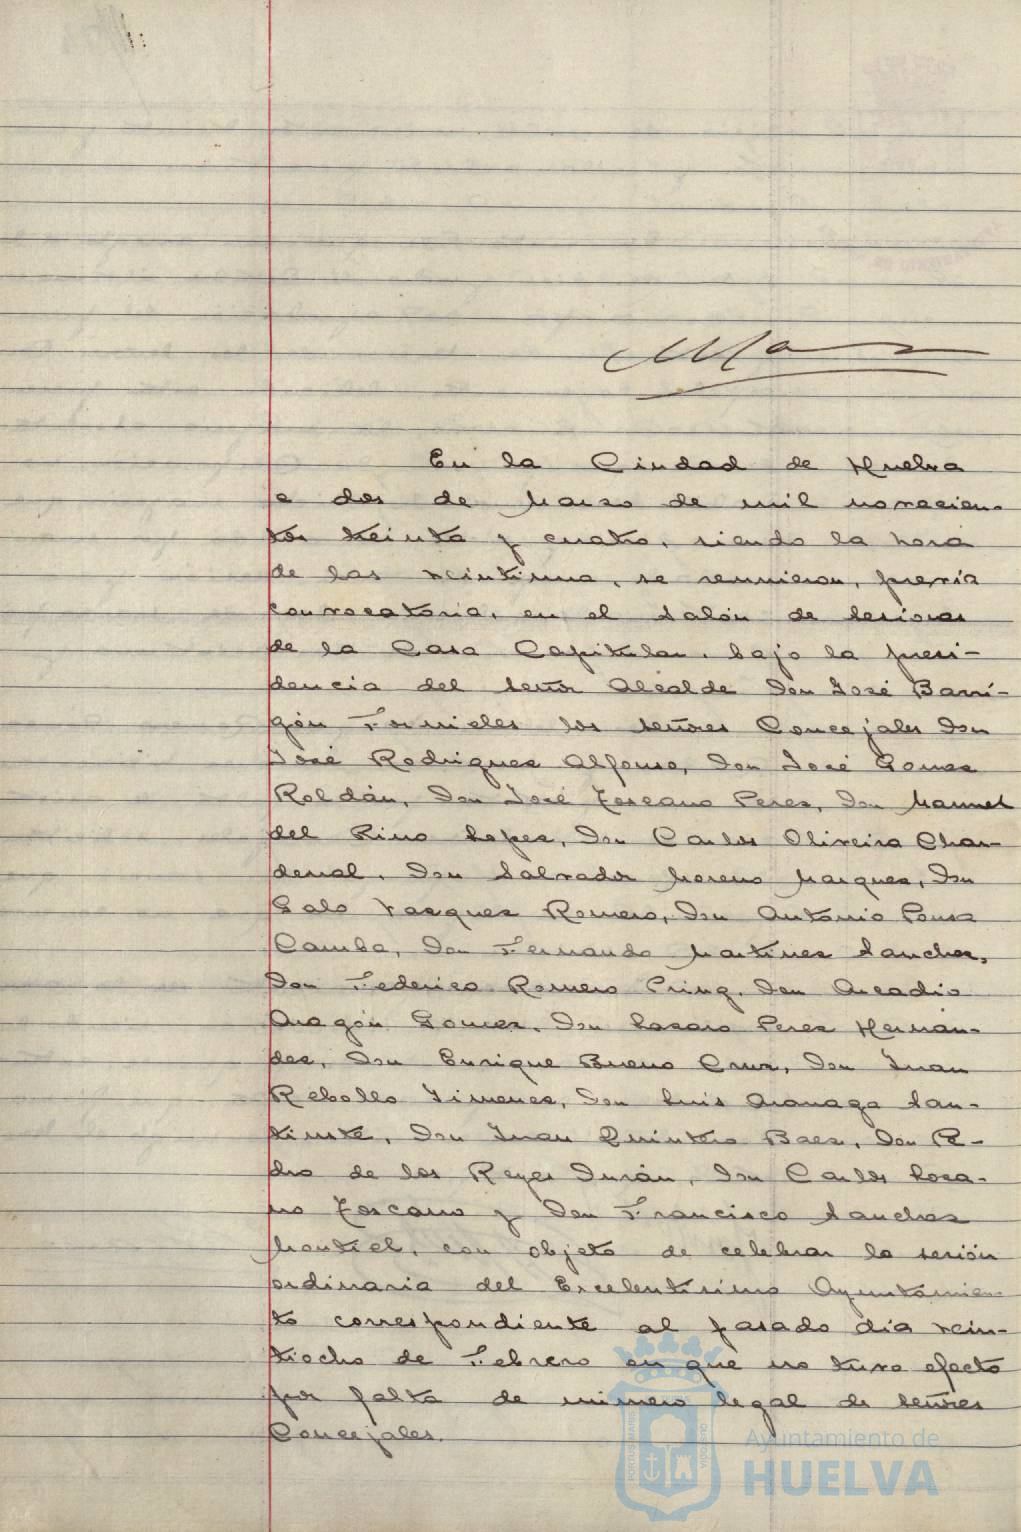 En la Ciudad de Huelva
a dos de Marzo de mil novecien-
tos treinta y cuatro, siendo la hora
de las veintiuna, se reunieron, previa
convocatoria, en el Salón de Sesiones
de la Casa Capitular, bajo la presi-
dencia del Señor Alcalde Don José Barri-
gón Fornieles los Señores Concejales Don
José Rodriguez Alfonso, Don José Gomez
Roldán, Don José Toscano Perez, Don Manuel
del Pino Lopez, Don Carlos Oliveira Char-
denal, Don Salvador Moreno Marquez, Don
Galo Vazquez Romero, Don Antonio Pousa
Camba, Don Fernando Martinez Sanchez,
Don Federico Romero Pring, Don Arcadio
Aragón Gomez, Don Lazaro Perez Hernan-
dez, Don Enrique Bueno Cruz, Don Juan
Rebollo Jimenez, Don Luis Aramaga San-
tiuste, Don Juan Quintero Baez, Don Pe-
dro de los Reyes Durán, Don Carlos Loza-
no Toscano y Don Francisco Sanchez
Montiel, con objeto de celebrar la sesión
ordinaria del Excelentisimo Ayuntamien-
to correspondiente al pasado dia vein-
tiocho de Febrero en que no tuvo efecto
por falta de número legal de Señores
Concejales.
Ayuntamiento de
HUELVA